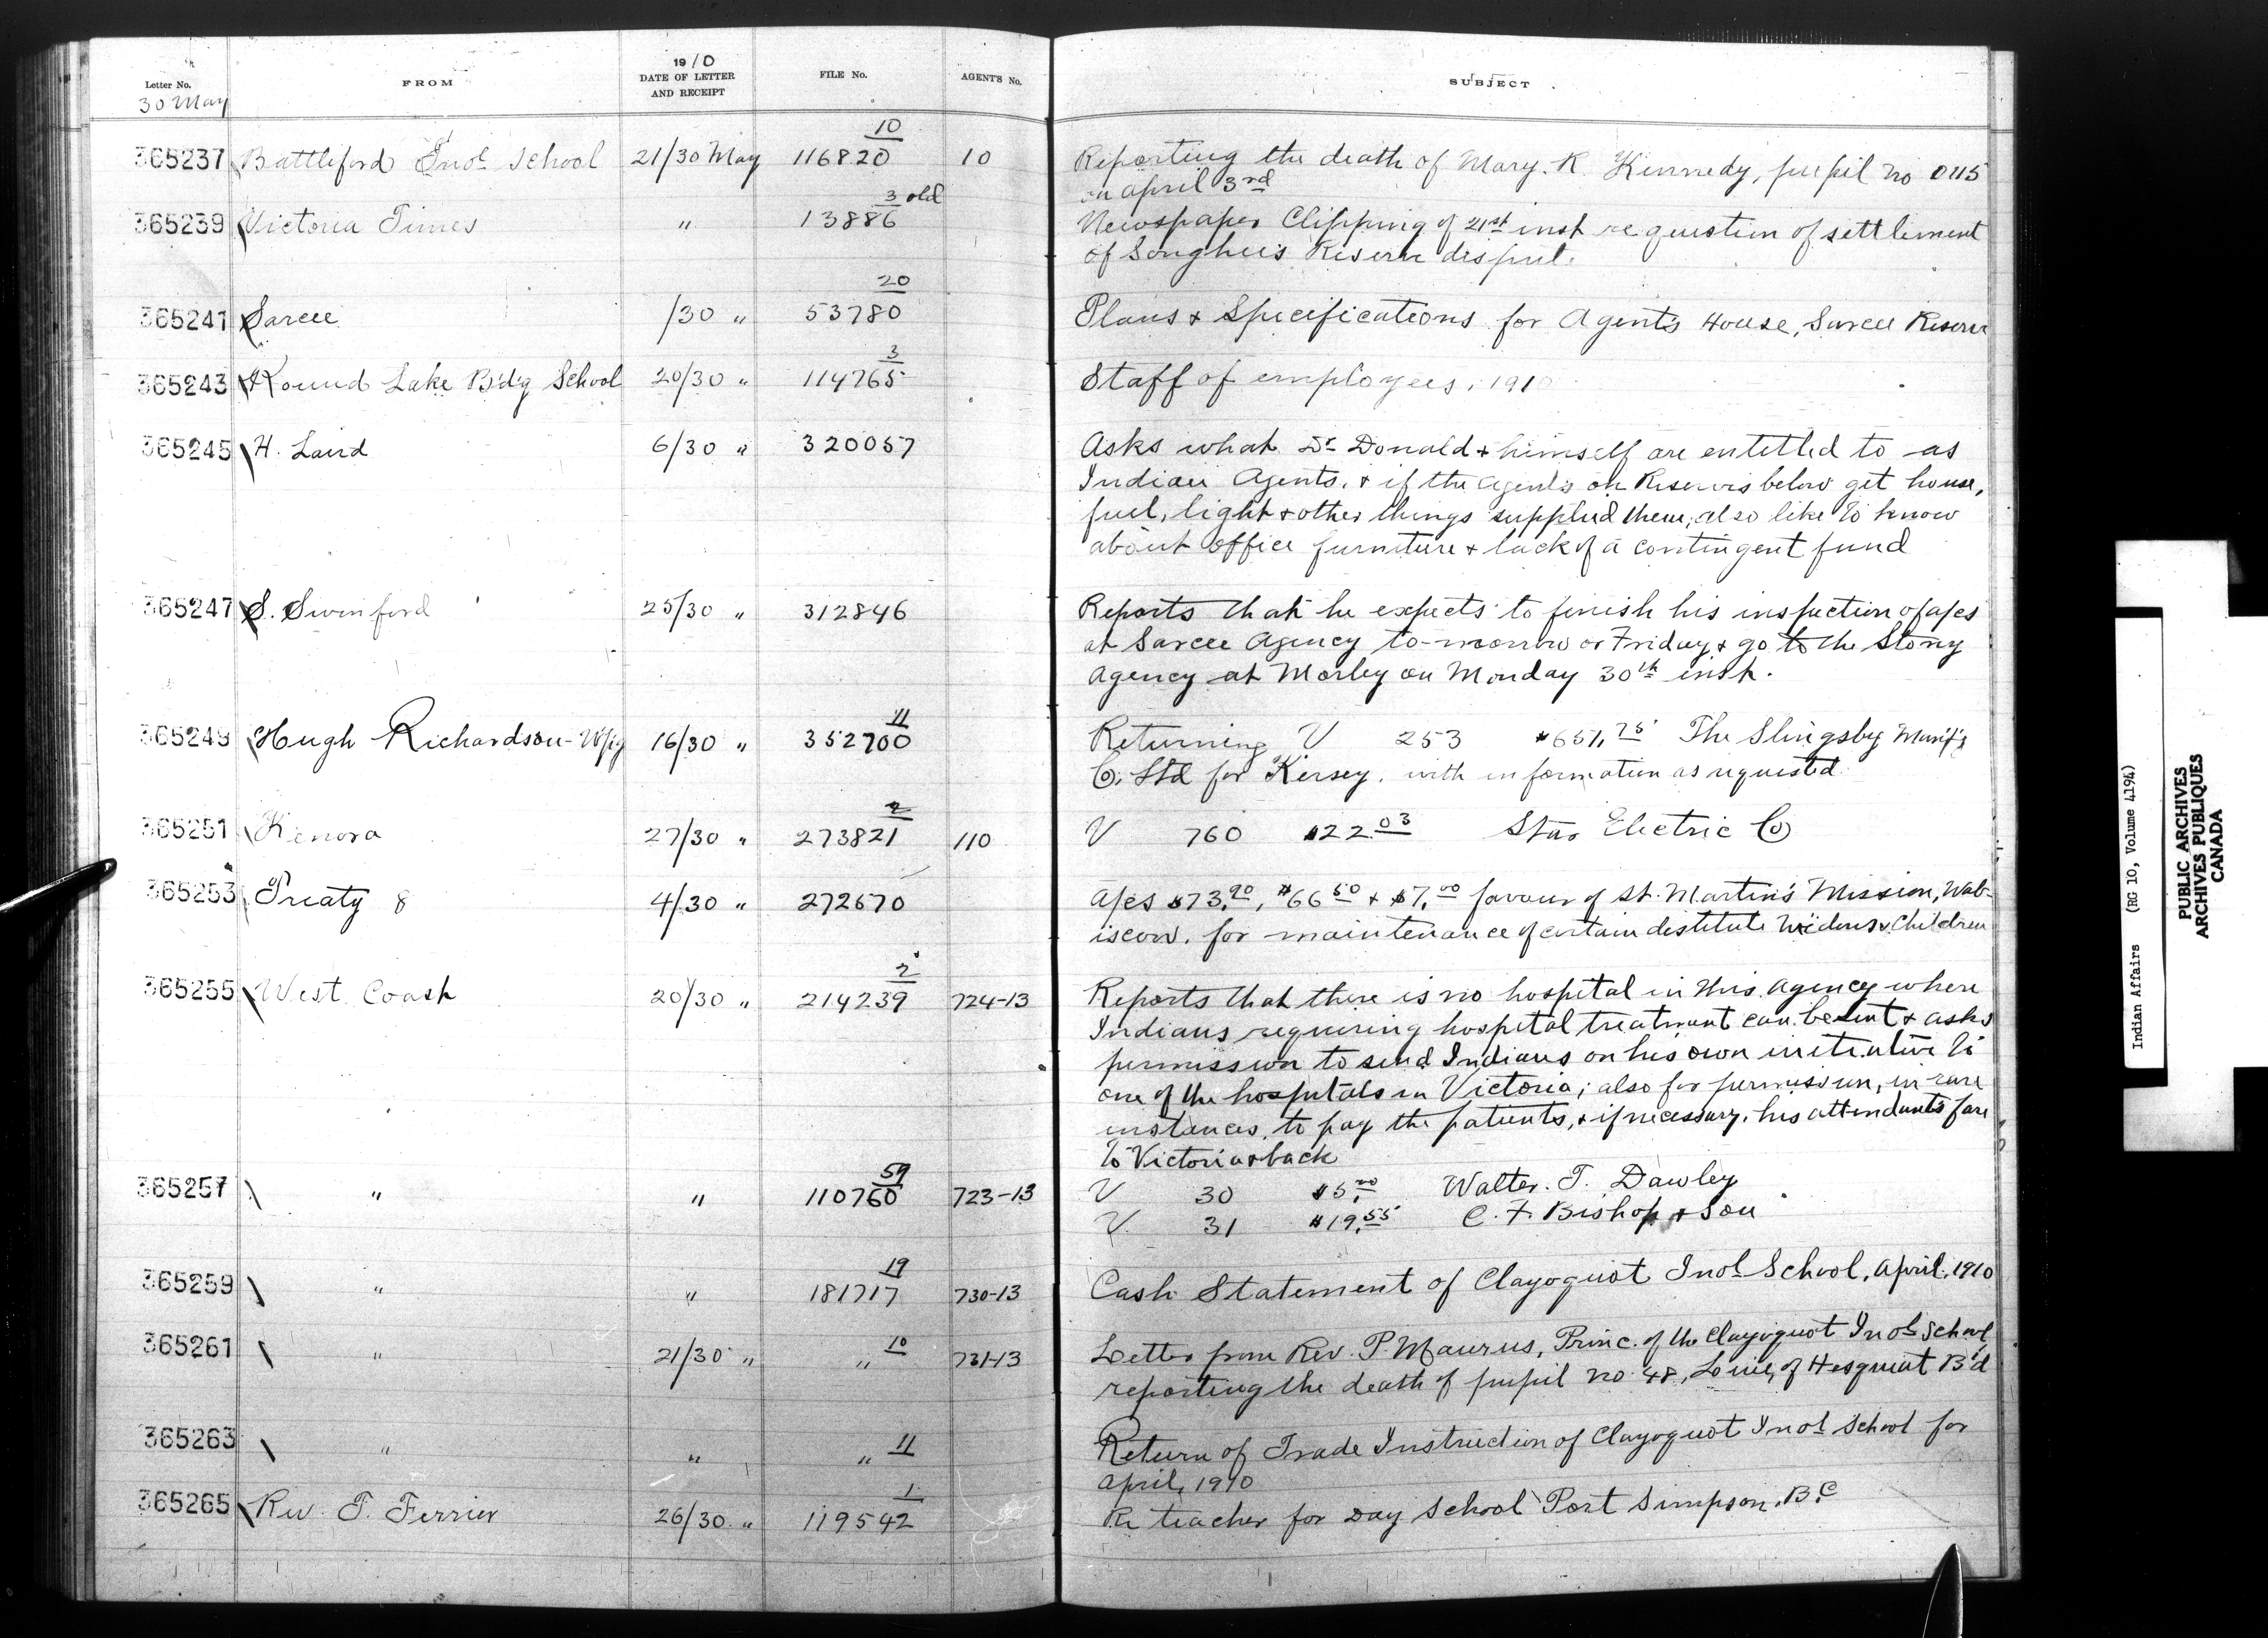 Letter No. FROM 1910 DATE OF LETTER AND RECEIPT FILE No. AGENT'S No. SUBJECT
30 May
10
365237 Battleford Indl School 21/30 May 116820 10 Reporting the death of Mary. R. Kennedy, pupil no 0115
on april 3rd
3 old
365239 Victoria Times " 13886 Newspaper Clipping of 21st inst re question of settlement
of Songhees Reserve
20
365241 Sarcee /30 " 53780 Plans & Specifications for Agent's House, Sarcee Reserve
3
365243 Round Lake B'd'g School 20/30 " 114765 Staff of employees, 1910
365245 H. Laird 6/30 " 320057 Asks what Dr Donald & himself are entitled to as
Indian Agents, & if the Agents on Reserves below get house,
fuel, light & other things supplied them, also like to know
about office furniture & lack of a contingent fund
365247 S. Swinford 25/30 " 312846 Reports that he expects to finish his inspection of a/cs
at Sarcee Agency to-morrow or Friday & go to the Stony
Agency at Morley on Monday 30th inst.
11
365249 Hugh Richardson - Wpg 16/30 " 352700 Returning V 253 $651.75 The Slingsby Manf'g
Co. Ltd for Kersey, with information as requested
2
365251 Kenora 27/30 " 273821 110 V 760 $22.03 Star Electric Co
365253 Treaty 8 4/30 " 272670 A/cs $73.90, $66.50 & $7.00 favour of St. Martin's Mission, Wab-
iscow, for maintenance of certain destitute Widows & Children
2
365255 West Coast 20/30 " 214239 724-13 Reports that there is no hospital in this Agency where
Indians requiring hospital treatment can be sent & asks
permission to send Indians on his own initiative to
one of the hospitals in Victoria; also for permission, in rare
instances, to pay the patients, & if necessary, his attendants fare
to Victoria & back
59
365257 " " 110760 723-13 V 30 $5.00 Walter. T. Dawley
V 31 $19.55 C. F. Bishop & Son
19
365259 " " 181717 730-13 Cash Statement of Clayoquot Indl School, April, 1910
10
365261 " 21/30 " " 731-13 Letter from Rev. P. Maurus, Princ. of the Clayoquot Indl School
reporting the death of pupil no. 48, Louie, of Hesquiat B'd
11
365263 " " " Return of Trade Instruction of Clayoquot Indl School for
April, 1910
1
365265 Rev. T. Ferrier 26/30 " 119542 Re teacher for Day School Port Simpson, B.C
Indian Affairs (RG 10, Volume 4194)
PUBLIC ARCHIVES
ARCHIVES PUBLIQUES
CANADA